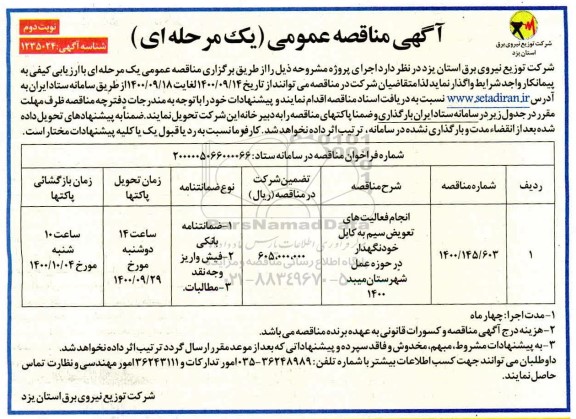 نوبت دوم
شناسه آگهی: ۱۲۳۵۰۲۴
آگهی مناقصه عمومی (یک مرحله ای)
شرکت توزیع نیروی برق
استان یزد
شرکت توزیع نیروی برق استان یزد در نظر دارد اجرای پروژه مشروحه ذیل را از طریق برگزاری مناقصه عمومی یک مرحله ای با ارزیابی کیفی به
پیمانکار واجد شرایط واگذار نماید لذا متقاضیان شرکت در مناقصه می توانند از تاریخ ۱۴۰۰/۰۹/۱۴ لغایت ۱۴۰۰/۰۹/۱۸ از طریق سامانه ستاد ایران به
آدرس www.setadiran.ir نسبت به دریافت اسناد مناقصه اقدام نمایند و پیشنهادات خود را با توجه به مندرجات دفترچه مناقصه ظرف مهلت
مقرر در جدول زیر در سامانه ستاد ایران بارگذاری و ضمنا پاکتهای مناقصه را به دبیرخانه این شرکت تحویل نمایند. ضمناً به پیشنهادهای تحویل داده
شده بعد از انقضاء مدت و بارگذاری نشده در سامانه، ترتیب اثر داده نخواهد شد. کارفرما نسبت به رد یا قبول یک یا کلیه پیشنهادات مختار است.
شماره فراخوان مناقصه در سامانه ستاد: ۲۰۰۰۰۰۵۰۶۶۰۰۰۰۶۶
ردیف
شماره مناقصه
شرح مناقصه
تضمین شرکت در مناقصه (ریال)
نوع ضمانتنامه
زمان تحویل پاکتها
زمان بازگشائی پاکتها
۱
۱۴۰۰/۱۴۵/۶۰۳
انجام فعالیت های تعویض سیم به کابل خودنگهدار در حوزه عمل شهرستان میبد ۱۴۰۰
۶۰۵.۰۰۰.۰۰۰
۱-ضمانتنامه بانکی
۲-فیش واریز وجه نقد
۳-مطالبات.
ساعت ۱۴ دوشنبه مورخ ۱۴۰۰/۰۹/۲۹
ساعت ۱۰ شنبه مورخ ۱۴۰۰/۱۰/۰۴
۰۲۱-۸۸۳۴۹۶۷۰
۱-مدت اجرا: چهار ماه
۲-هزینه درج آگهی مناقصه و کسورات قانونی به عهده برنده مناقصه می باشد.
۳-به پیشنهادات مشروط، مبهم، مخدوش و فاقد سپرده و پیشنهاداتی که بعد از موعد مقرر ارسال گردد ترتیب اثر داده نخواهد شد.
داوطلبان می توانند جهت کسب اطلاعات بیشتر با شماره تلفن: ۳۶۲۴۸۹۸۹-۰۳۵ امور تدارکات و ۳۶۲۴۳۱۱۱ امور مهندسی و نظارت تماس
حاصل نمایند.
شرکت توزیع نیروی برق استان یزد